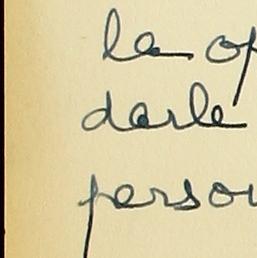 la op
darle
person